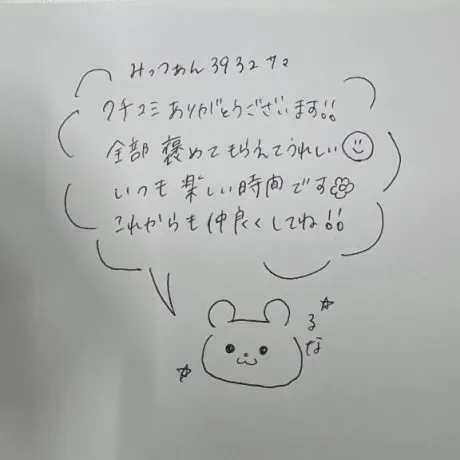 みっつめん3932サマ
クチコミありがとうございます!!
全部 褒めてもらえてうれしい
いつも 楽しい時間です
これからも仲良くしてね!!
るな